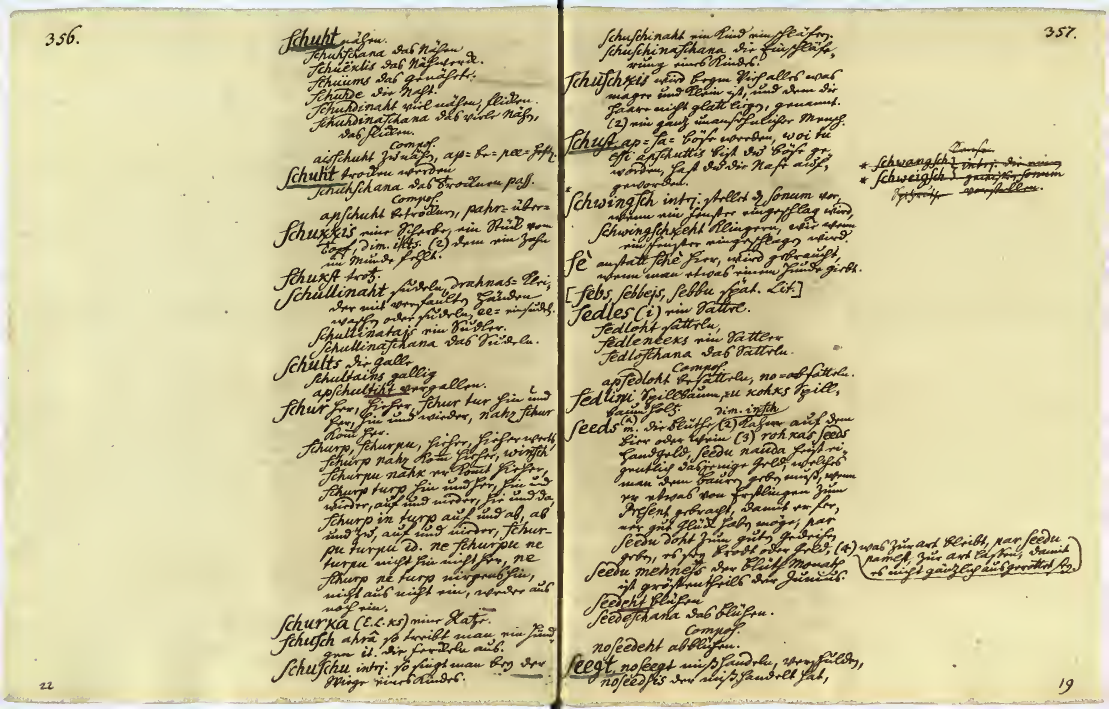 356.
Schuht nähen.
Schuhschana das Nähen
Schuëklis das Nähwerk.
Schuüms das genähete.
Schuhde die Naht.
Schuhdinaht viel nähen, flicken.
Schuhdinaschana das viele Nähen,
das flicken.
Compos.
aisschuht zunähen, ap= be= pee=
Schuht trocken werden
Schuhschana das trocknen pass.
Compos.
apschuht betrocknen, pahr= über=
Schukkis eine Scherbe, ein Stück vom
Topf, dim. ikts. (2) dem ein Zahn
im Munde fehlt.
Schukst trotz.
Schullinaht sudeln, drahnas= Klei,
der mit verfaulten Händen
waschen oder sudeln, ee= einsudeln.
Schullinatajs ein Sudler.
Schullinaschana das Sudeln.
Schults die Galle
Schultains gallig
apschultiht vergallen.
Schur her, hieher, Schur tur hin und
her, hin und wieder, nahz schur
Kom her.
Schurp, Schurpu, hieher, hieher werts,
Schurp nahz Kom hieher, winsch
Schurpu nahk er komt hieher,
Schurp turp hin und her, hin und
wieder, auf und nieder, hie und da,
Schurp in turp auf und ab, ab
und zu, auf und nieder, Schur=
pu turpu id. ne Schurpu ne
turpu nicht hin nicht her, ne
Schurp ne turp nirgends hin,
nicht aus nicht ein, weder aus
noch ein.
Schurka (E. L. ks) eine Ratze.
Schusch ahrâ so treibt man ein Hund=
gen it. die ferckeln aus.
Schuschu interj. so singt man bey der
Wiege eines Kindes.
22
357.
Schuschinaht ein Kind einschläfern.
Schuschinaschana die Einschläfe,
rung eines Kindes.
Schuschkis wird beym Vieh alles was
mager und klein ist, und dem die
Haare nicht glatt ligen, genannt.
(2) ein gantz unansehnlicher Mensch.
Schust ap= sa= böse werden, woi tu
essi apschutis bist du böse ge=
worden, hast du die Nase aufge,
geworden.
* Schwangsch } interj. die einen
* Schweigsch } gewissen sonum
vorstellen.
Schwingsch interj. stellet d. sonum vor,
wenn ein fenster eingeschlagen wird,
Schwingschkeht klingern, wie wenn
ein fenster eingeschlagen wird.
Sè anstatt Schè hier, wird gebraucht,
wenn man etwas einem Hunde giebt.
[Sebs, sebbejs, sebbu spät. Lit.]
Sedles (i) ein Sattel.
Sedloht satteln,
Sedleneeks ein Sattler
Sedloschana das Satteln.
Compos.
apsedloht besatteln, no= absatteln.
Sedlini Spillbaum, zu kohks Spill,
baumholtz.
dim. insch
Seeds m. die blüthe, (2) Kahnen auf dem
bier oder wein (3) rohkas seeds
handgeld, seedu nauda heist ei,
gentlich dasjenige Geld, welches
man dem bauren geben muß, wenn
er etwas von Erstlingen zum
Present gebracht, damit er fer,
ner gut Glück haben möge, par
seedu doht zum guten gedeihen
geben, es sey brodt oder Geld, (4) was zur art bleibt, par seedu
pamest, zur art laßen, damit
es nicht gäntzlich ausgerottet sey
Seedu mehness der blüth Monath
ist gröstentheils der Junius.
Seedeht blühen.
Seedeschana das blühen.
Compos.
noseedeht abblühen.
Seegt, noseegt mißhandeln, verschulden,
noseedsis der mißhandelt hat,
19